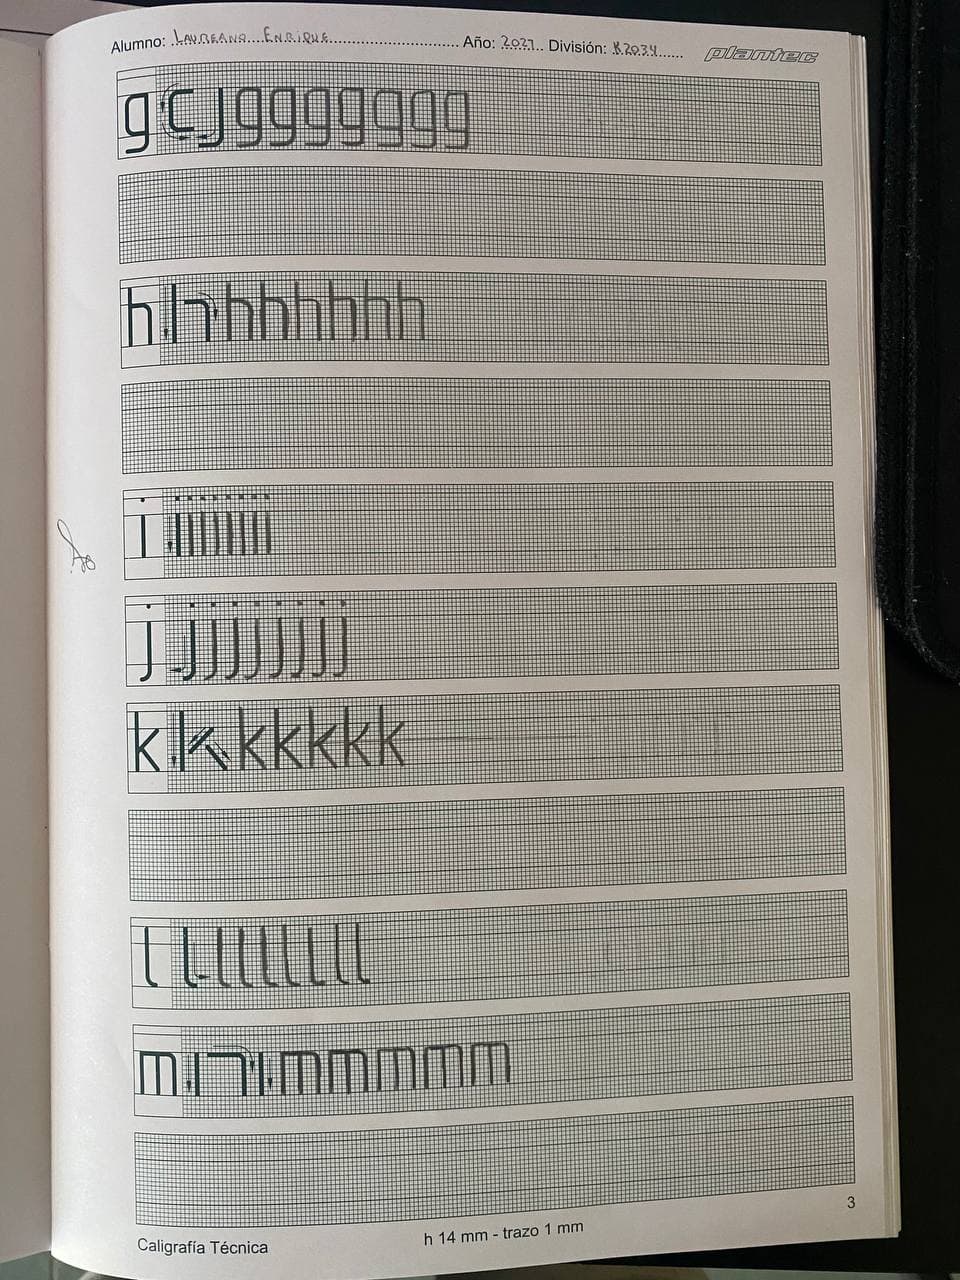 Alumno: LAUREANO ENRIQUE Año: 2021 División: K2034 plantec
g g ggggggg
h h hhhhhh
i iiiiiiii
j jjjjjjjj
k k kkkkk
l l lllllll
m m mmmmm
3
Caligrafía Técnica h 14 mm - trazo 1 mm